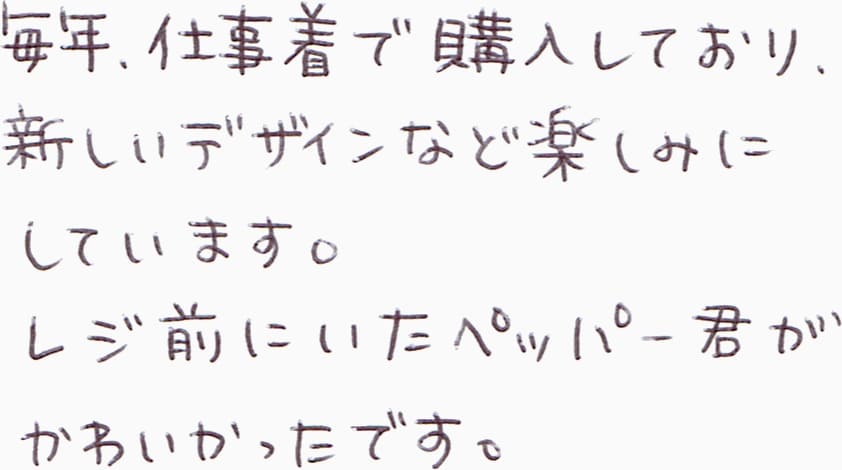 毎年、仕事着で購入しており、
新しいデザインなど楽しみに
しています。
レジ前にいたペッパー君が
かわいかったです。